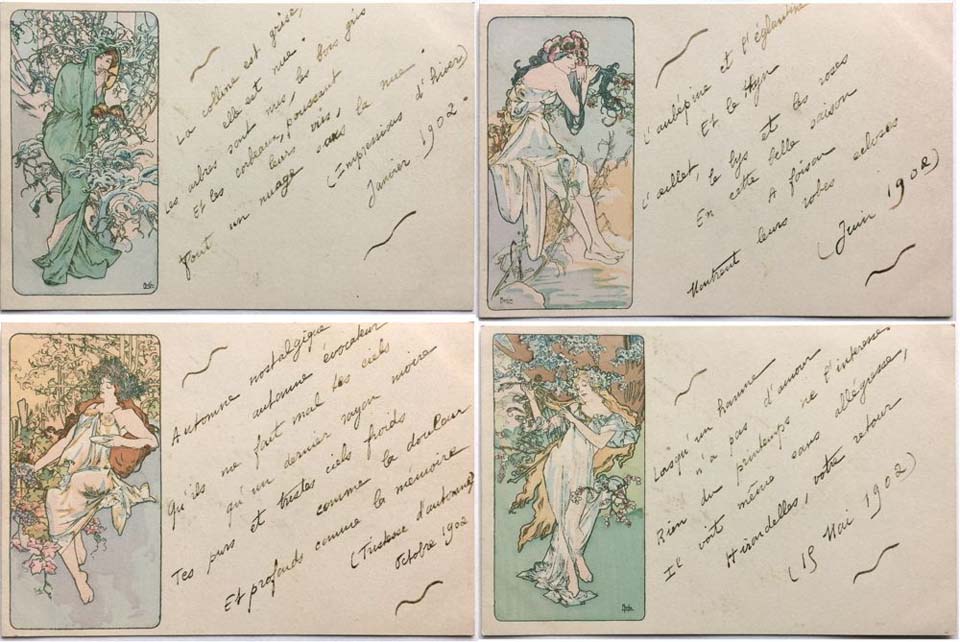 La colline est grise,
elle est nue.
Les arbres sont nus, les bois gris
Et les corbeaux, poussant
leurs cris,
Font un nuage sous la nue.
(Impressions d'hiver)
Janvier 1902.
Mucha
L'aubépine et l'églantine
Et le thyn
L'œillet, le lys et les roses
En cette belle saison
A foison
Montrent leurs robes écloses
(Juin 1902)
Mucha
Automne nostalgique
automne évocateur
Qu'ils me font mal tes ciels
qu'un dernier rayon moire
Tes purs et tristes ciels froids
comme la douleur
Et profonds comme la mémoire
(Tristesse d'automne)
Octobre 1902
Lorsqu'un homme
n'a pas d'amour
Rien du printemps ne l'intéresse
Il voit même sans allégresse,
Hirondelles, votre retour
(15 Mai 1902)
Mucha